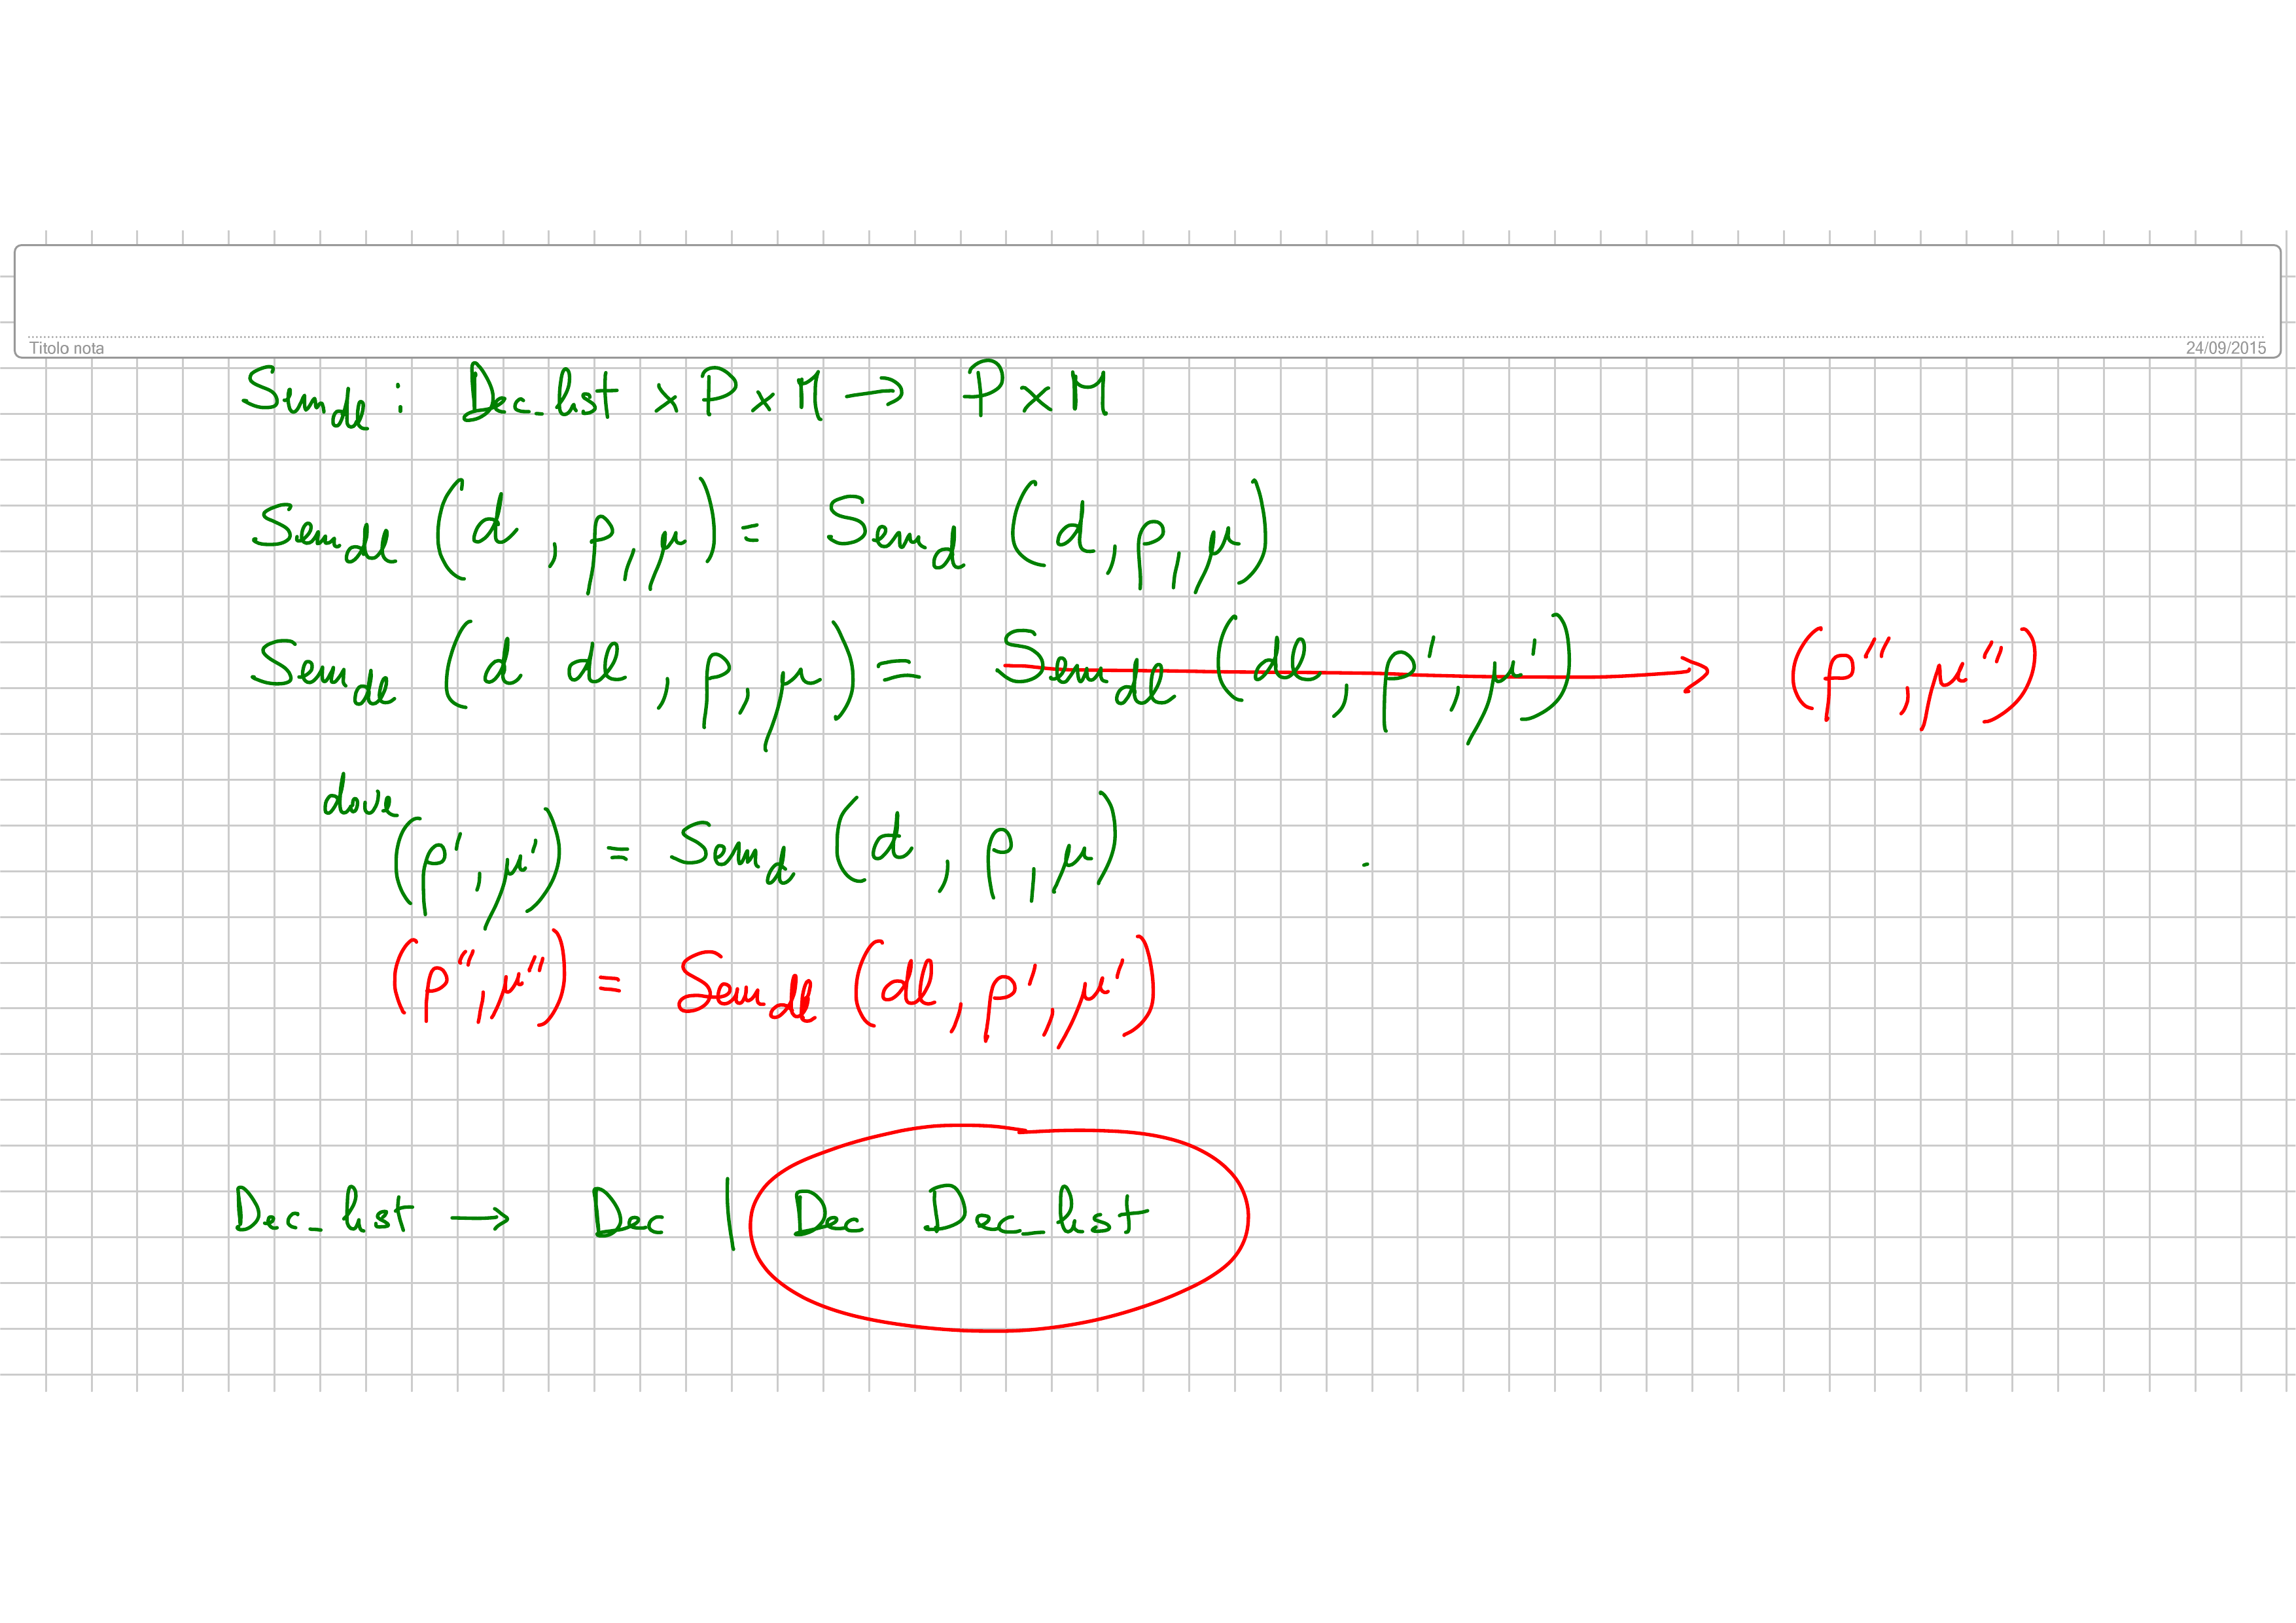 Titolo nota 24/09/2015
Sem_dl : Dec_list x P x M → P x M
Sem_dl (d , ρ, μ) = Sem_d (d, ρ, μ)
Sem_dl (d dl, ρ, μ) = Sem_dl (dl, ρ', μ') → (ρ'', μ'')
dove
(ρ', μ') = Sem_d (d, ρ, μ)
(ρ'', μ'') = Sem_dl (dl, ρ', μ')
Dec_list → Dec | Dec Dec_list